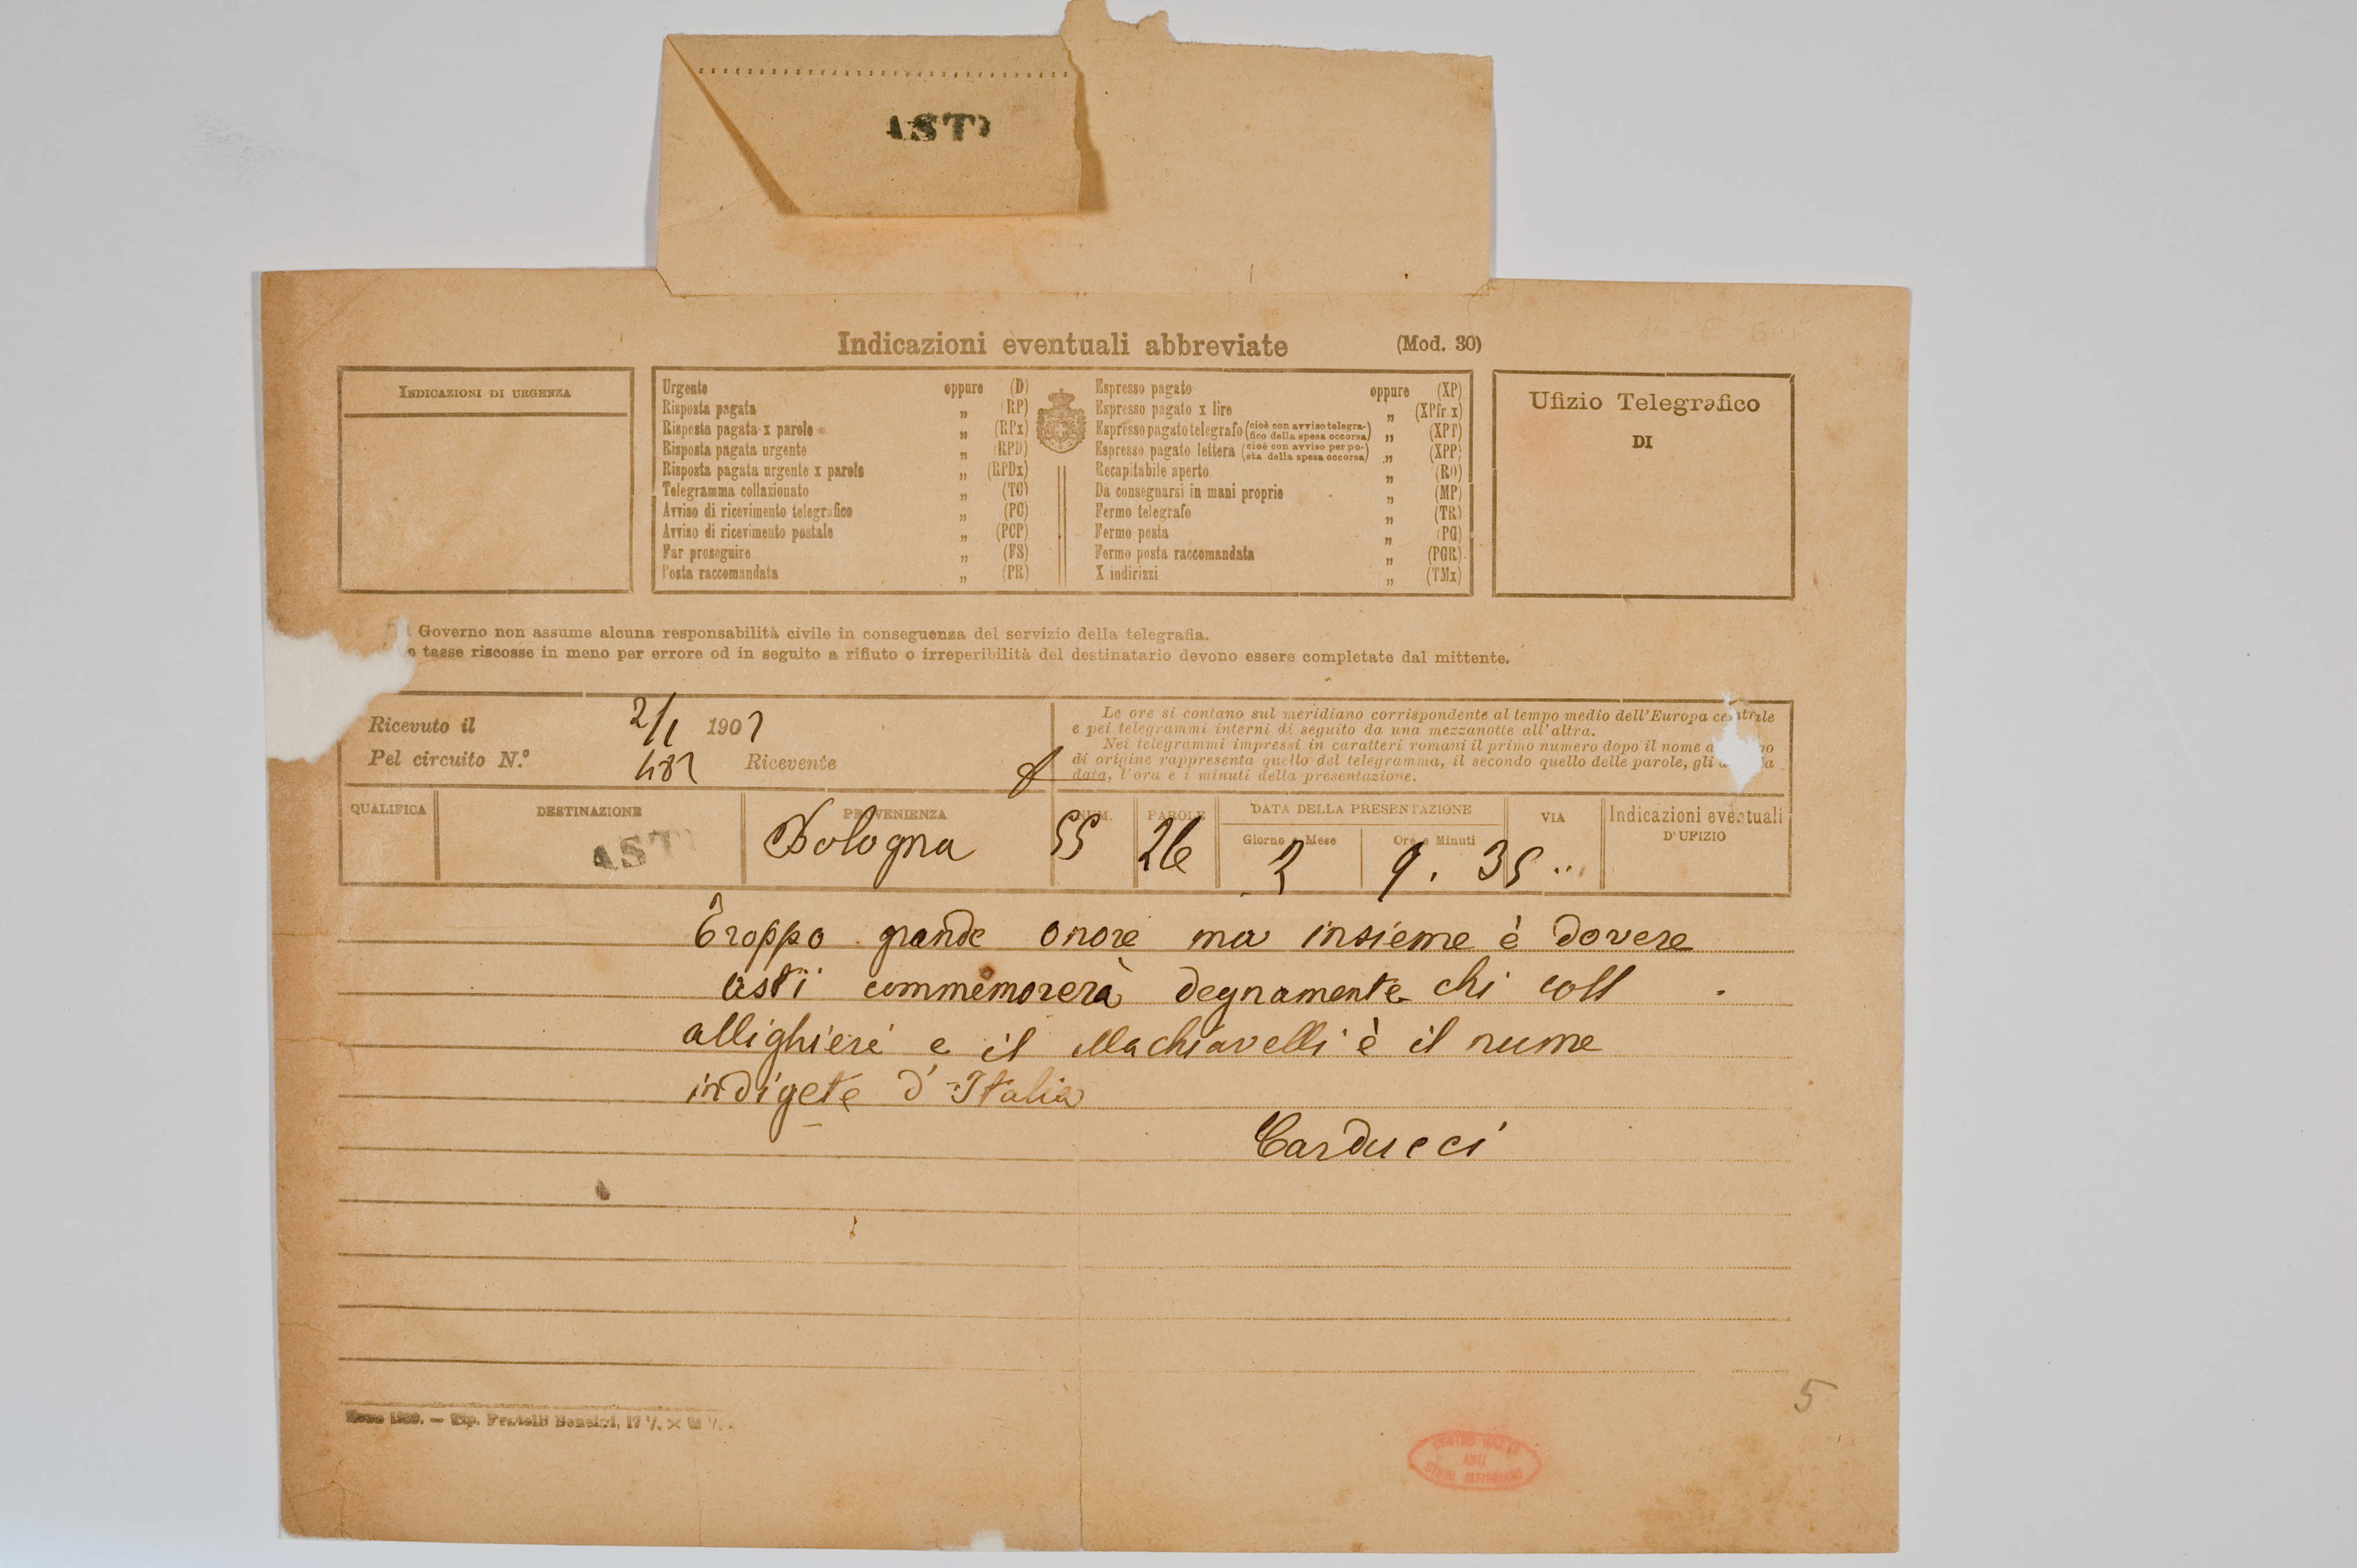 ASTI
Indicazioni eventuali abbreviate (Mod. 30)
INDICAZIONI DI URGENZA
Urgente oppure (D)
Risposta pagata „ (RP)
Risposta pagata x parole „ (RPx)
Risposta pagata urgente „ (RPD)
Risposta pagata urgente x parole „ (RPDx)
Telegramma collazionato „ (TC)
Avviso di ricevimento telegrafico „ (PC)
Avviso di ricevimento postale „ (PCP)
Far proseguire „ (FS)
Posta raccomandata „ (PR)
Espresso pagato oppure (XP)
Espresso pagato x lire „ (XPfr.x)
Espresso pagato telegrafo (cioè con avviso telegra-fico della spesa occorsa) „ (XPT)
Espresso pagato lettera (cioè con avviso per po-sta della spesa occorsa) „ (XPP)
Recapitabile aperto „ (RO)
Da consegnarsi in mani proprie „ (MP)
Fermo telegrafo „ (TR)
Fermo posta „ (PG)
Fermo posta raccomandata „ (PGR)
X indirizzi „ (TMx)
Ufizio Telegrafico
DI
Governo non assume alcuna responsabilità civile in conseguenza del servizio della telegrafia.
e tasse riscosse in meno per errore od in seguito a rifiuto o irreperibilità del destinatario devono essere completate dal mittente.
Ricevuto il 2/1 1902
Pel circuito N.° Ricevente
Le ore si contano sul meridiano corrispondente al tempo medio dell'Europa centrale
e pei telegrammi interni di seguito da una mezzanotte all'altra.
Nei telegrammi impressi in caratteri romani il primo numero dopo il nome
di origine rappresenta quello del telegramma, il secondo quello delle parole, gli
data, l'ora e i minuti della presentazione.
QUALIFICA DESTINAZIONE PROVENIENZA NUM. PAROLE DATA DELLA PRESENTAZIONE VIA Indicazioni eventuali
Giorno e Mese Ore e Minuti D'UFIZIO
ASTI Bologna 55 26 2 9.35
Troppo grande onore ma insieme è dovere
asti commemorerà degnamente chi coll
allighieri e il Machiavelli è il nume
indigete d'Italia
Carducci
Tip. Fratelli Bencini
5
CENTRO
ASTI
STUDI ALFIERIANI